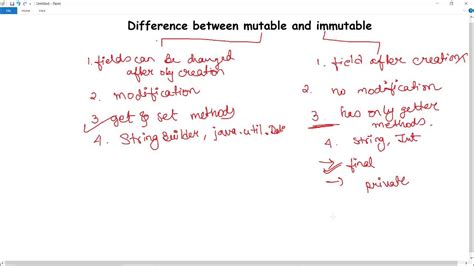 Untitled - Paint
Difference between mutable and immutable
1. fields can be changed
after obj creation
2. modification
3. get & set methods
4. StringBuilder, java.util.Date
1. field after creation X
2. no modification
3 has only getter
methods.
4. String, Int
→ final
→ private